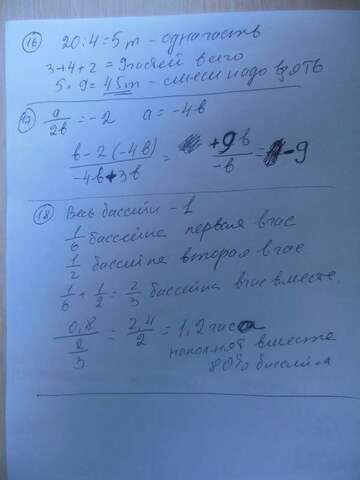 16 20:4=5т - одна часть
3+4+2=9 частей всего
5·9=45т - смеси надо взять
17 a/2b=-2 a=-4b
b-2(-4b)/-4b+3b = +9b/-b = -9
18 Весь бассейн - 1
1/6 бассейна первая в час
1/2 бассейна вторая в час
1/6+1/2=2/3 бассейна в час вместе.
0,8/2/3 = 2,4/2 = 1,2 часа
наполнят вместе
80% бассейна